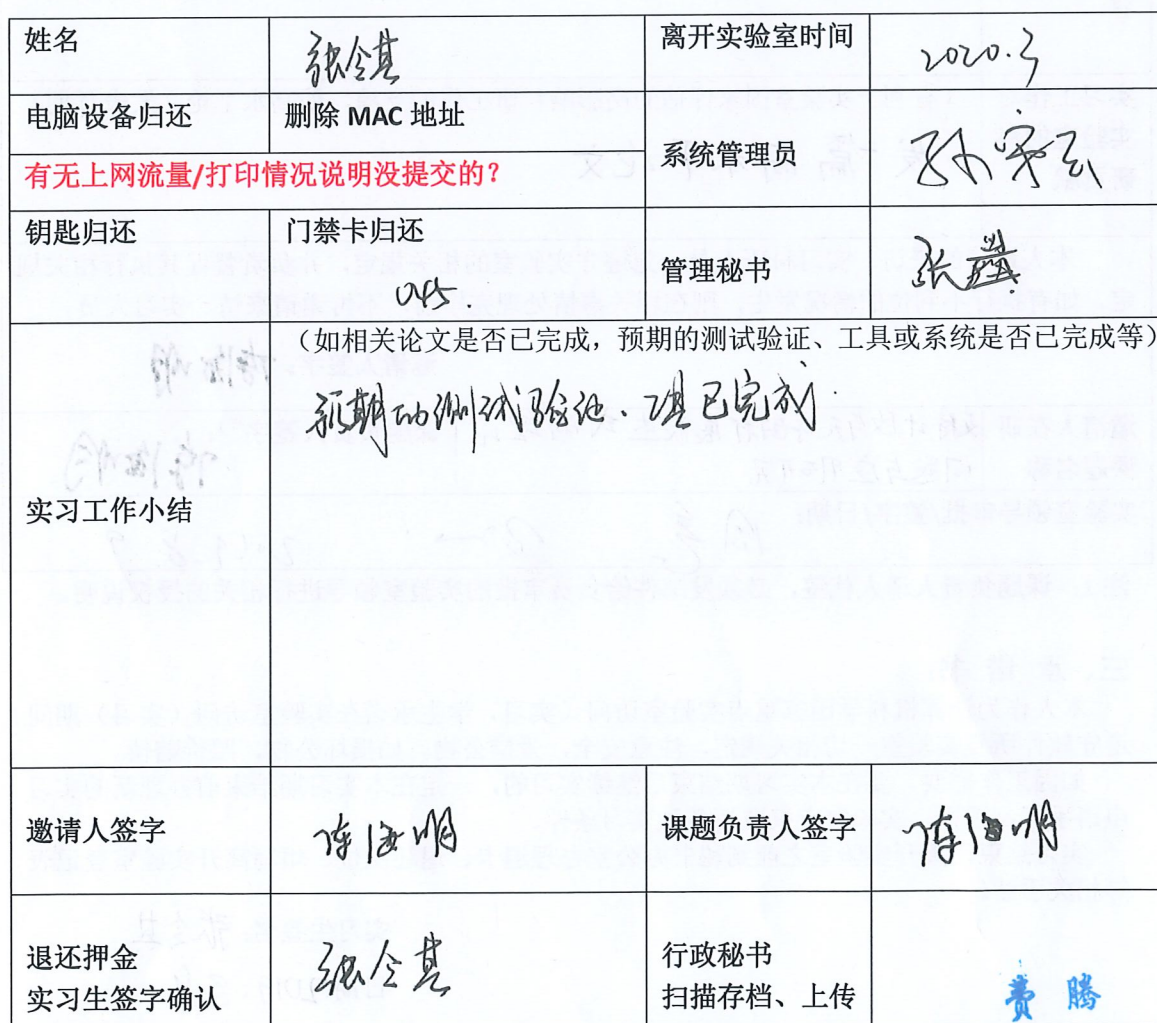 姓名 张令其 离开实验室时间 2020.3
电脑设备归还 删除 MAC 地址 系统管理员
有无上网流量/打印情况说明没提交的?
钥匙归还 门禁卡归还 045. 管理秘书 张
(如相关论文是否已完成,预期的测试验证、工具或系统是否已完成等)
预期的测试验证、工具已完成.
实习工作小结
邀请人签字 陈海明 课题负责人签字 陈海明
退还押金 行政秘书
实习生签字确认 张令其 扫描存档、上传 费腾